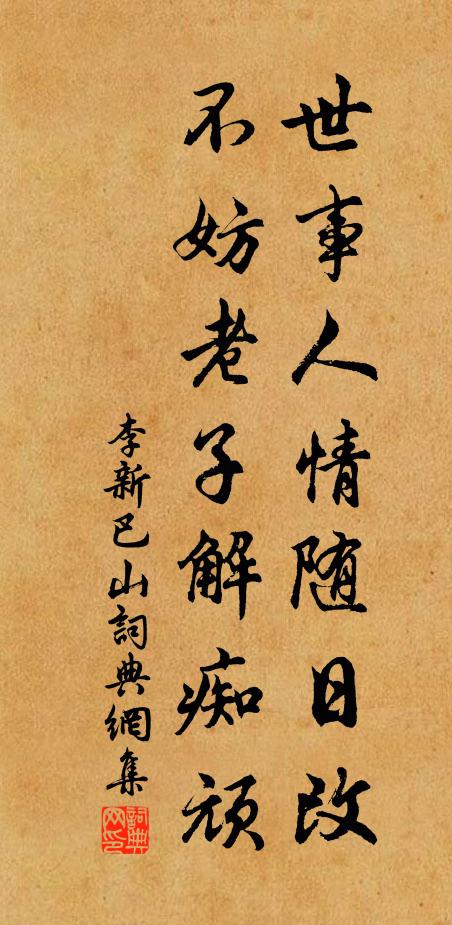 世事人情随日改
不妨老子解痴顽
李新巴山詞典網集
詞典网印